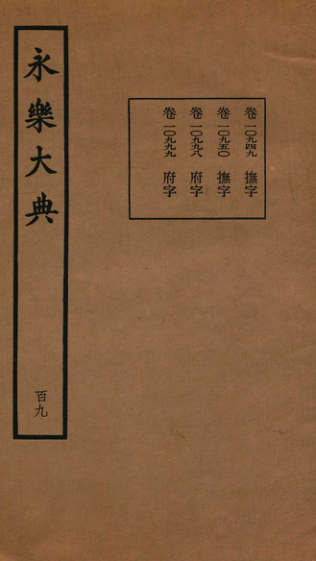 永樂大典
百九
卷一〇九四九 撫字
卷一〇九五〇 撫字
卷一〇九九八 府字
卷一〇九九九 府字